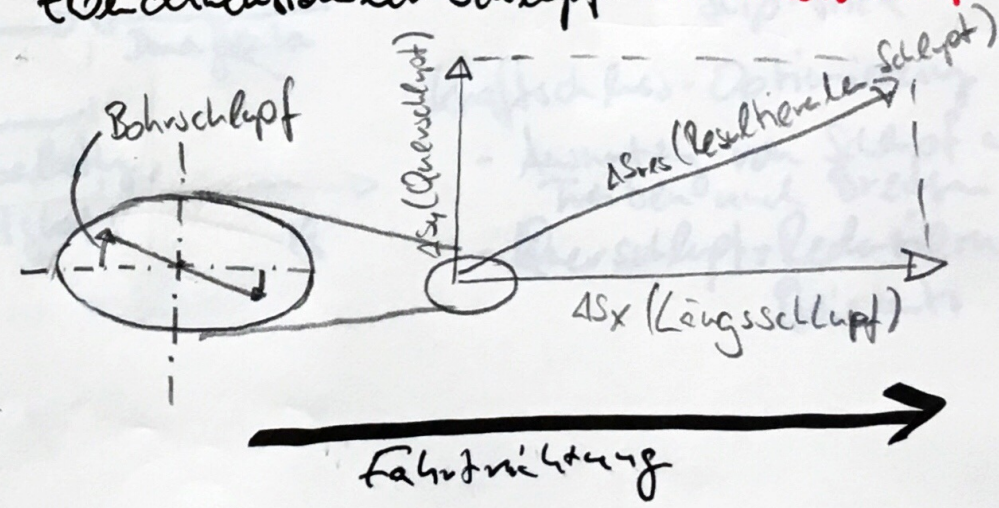 Bohrschlupf
ΔSy (Querschlupf)
ΔSres (Resultierender Schlupf)
ΔSx (Längsschlupf)
Fahrtrichtung